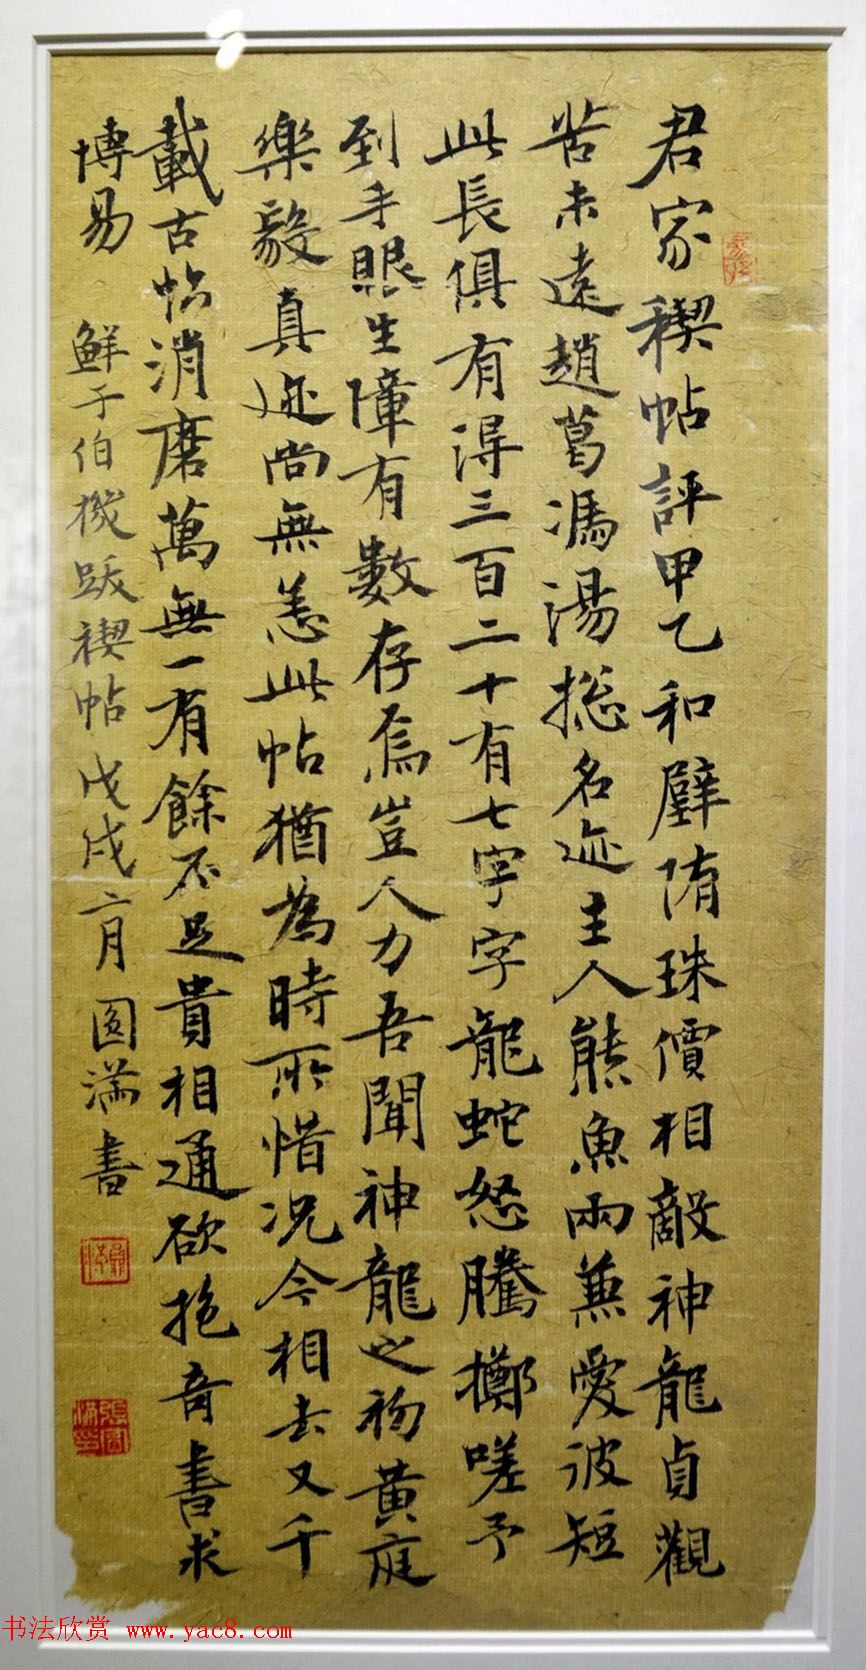 君家稧帖評甲乙和璧隋珠價相敵神龍貞觀
苦未遠趙葛馮湯揔名迹主人熊魚兩兼愛波短
此長俱有得三百二十有七字字龍蛇怒騰擲嗟予
到手眼生障有數存焉豈人力吾聞神龍之初黃庭
樂毅真迹尚無恙此帖猶為時所惜况今相去又千
載古帖消磨萬無一有餘不足貴相通欲抱奇書求
博易 鮮于伯機跋禊帖戊戌六月圓滿書
书法欣赏 www.yac8.com